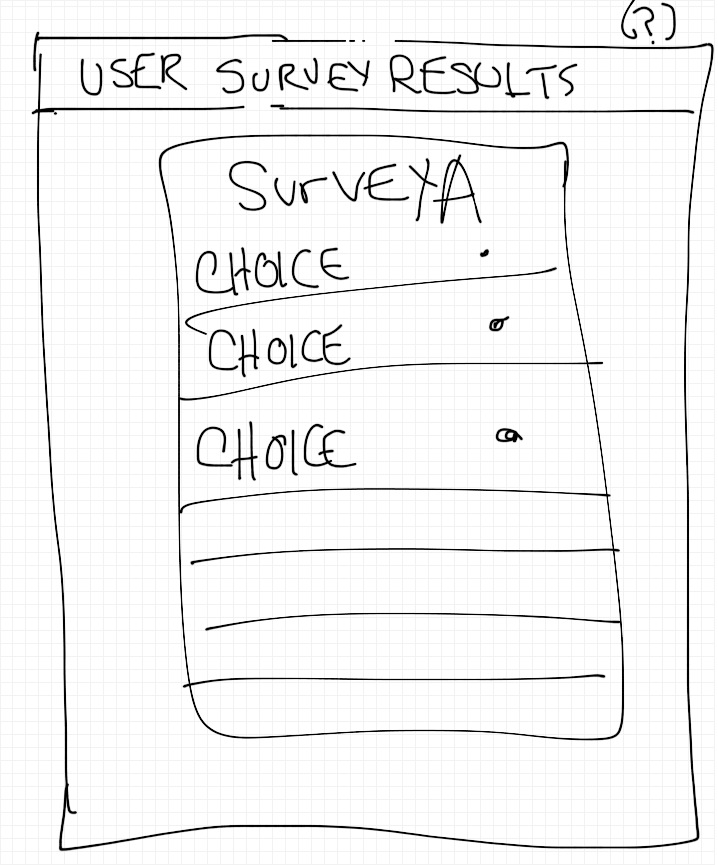 (?)
USER SURVEY RESULTS
SURVEY A
CHOICE
CHOICE
CHOICE